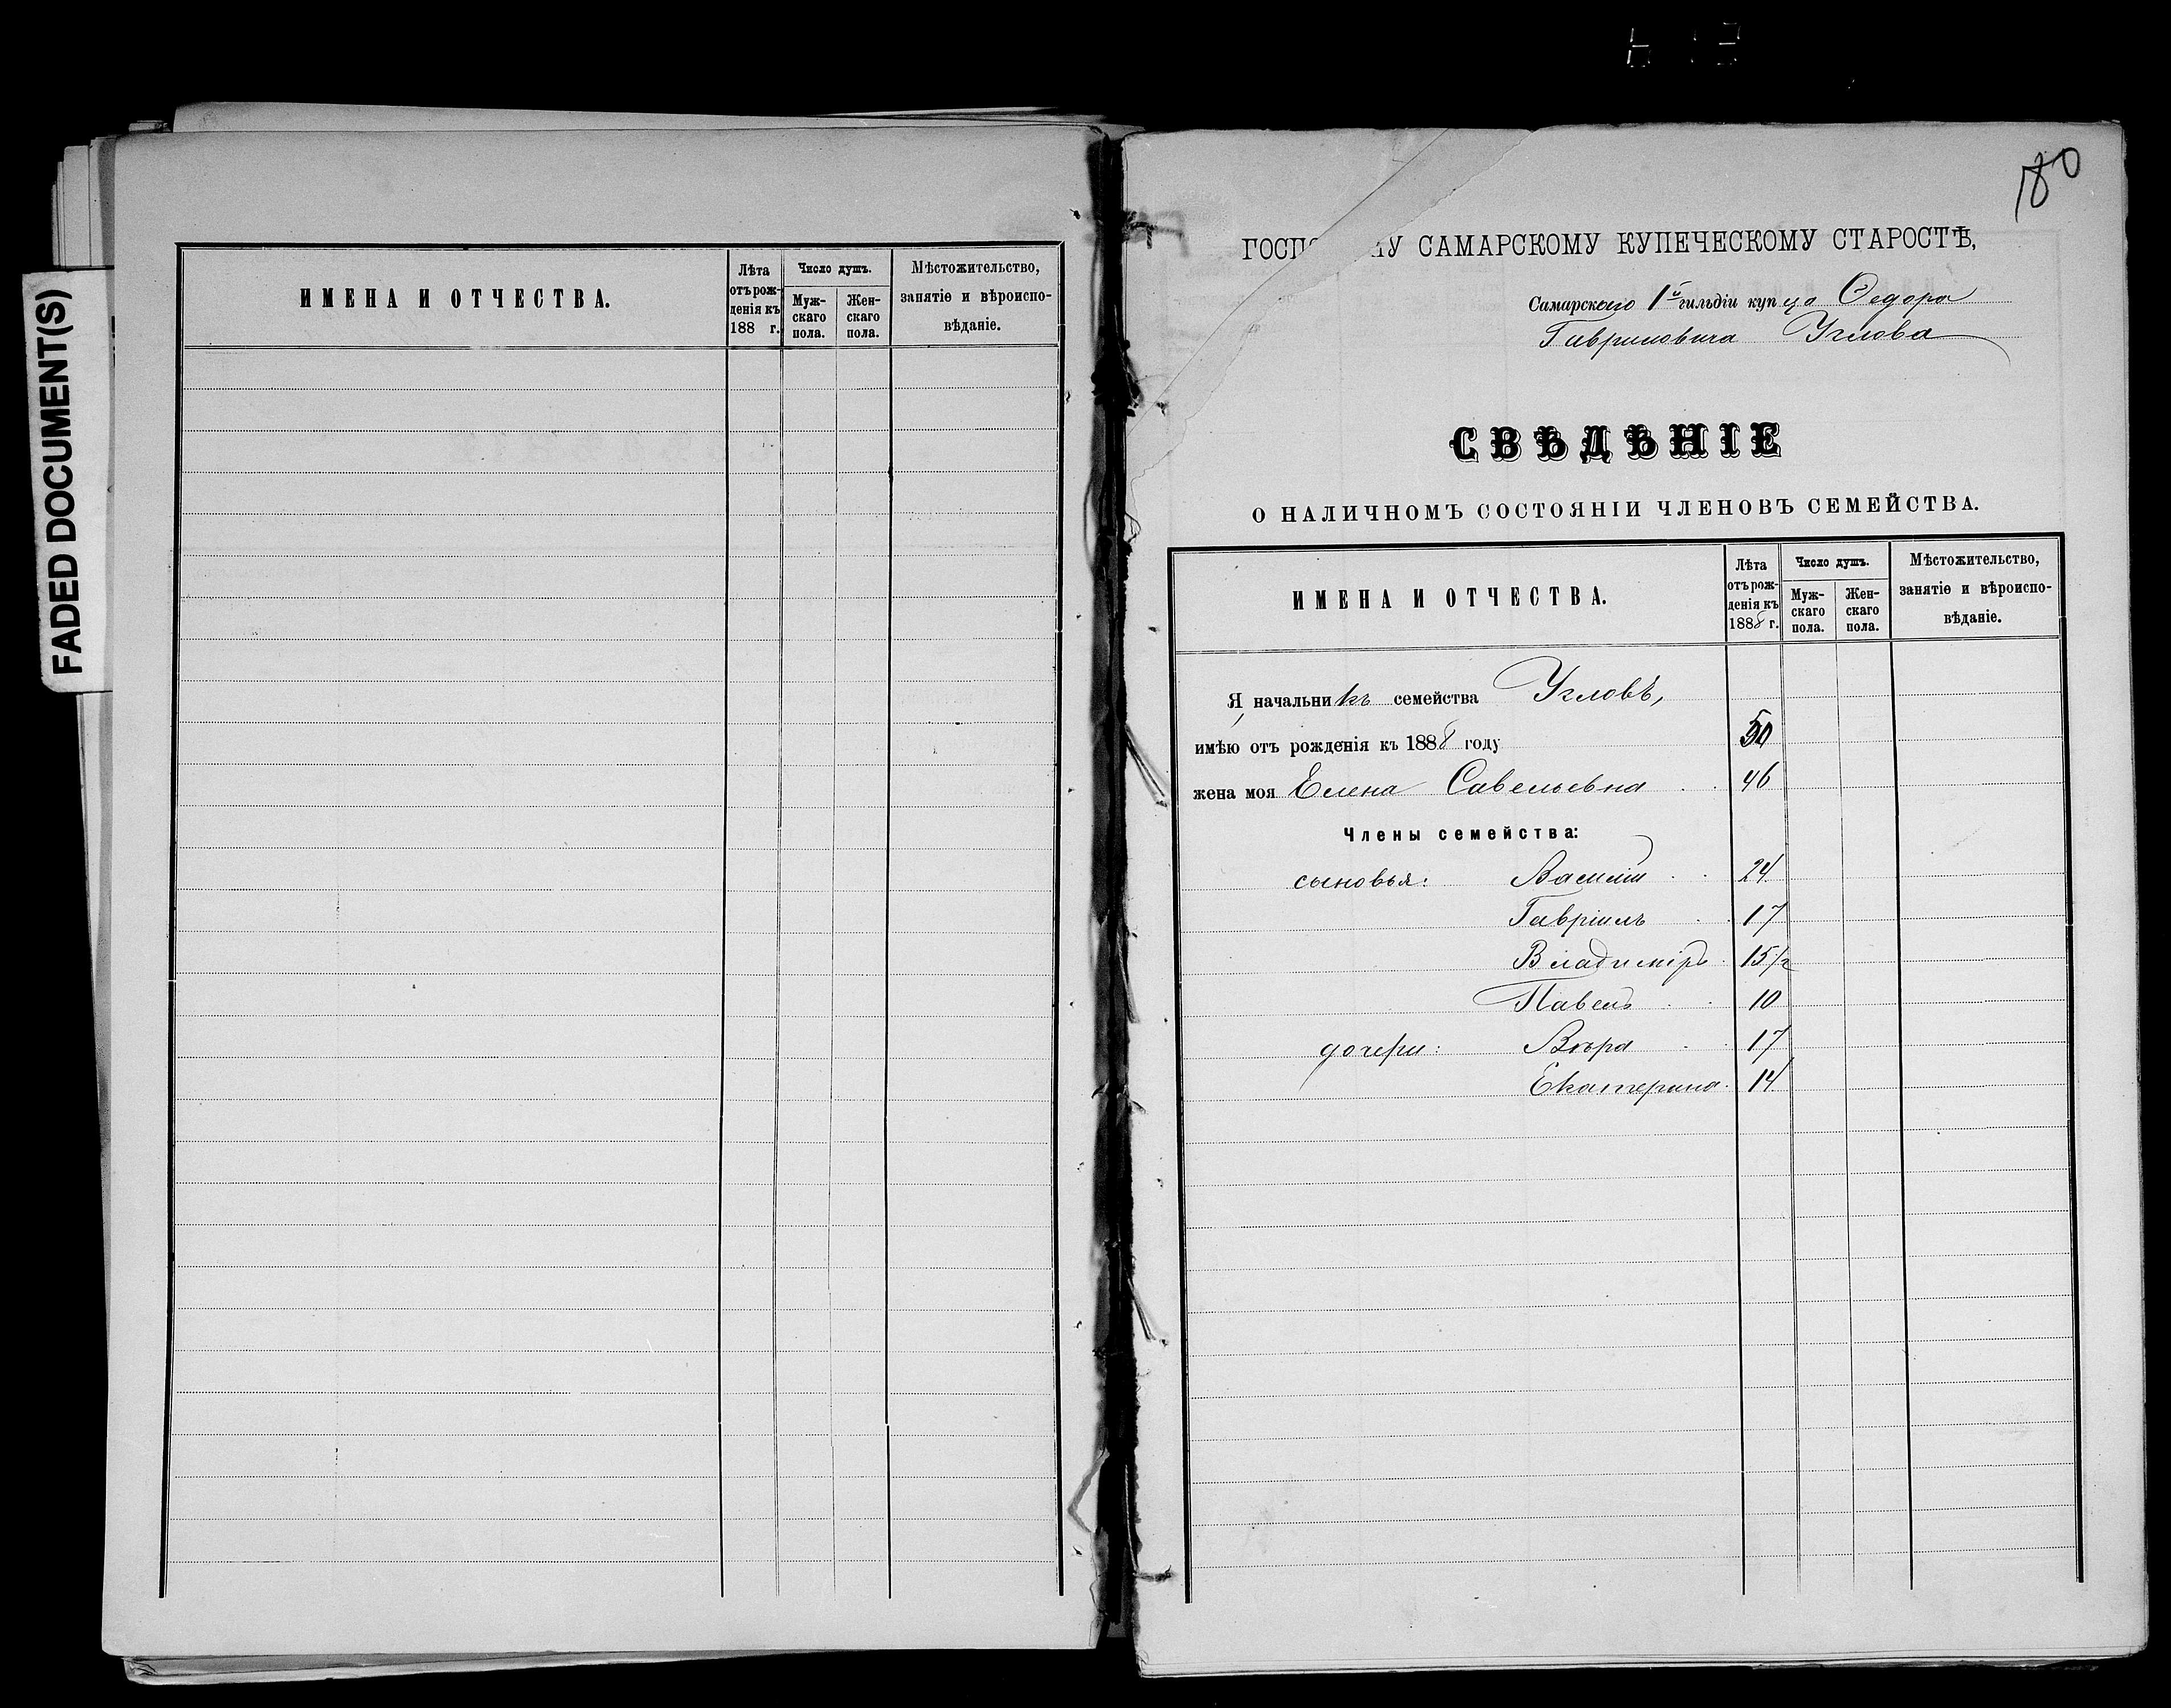 FADED DOCUMENT(S)
ИМЕНА И ОТЧЕСТВА.
Лѣта отъ рожденія къ 188 г.
Число душъ.
Мужскаго пола.
Женскаго пола.
Мѣстожительство, занятіе и вѣроисповѣданіе.
180
ГОСП МУ САМАРСКОМУ КУПЕЧЕСКОМУ СТАРОСТѢ,
Самарскаго 1й гильдіи купца Ѳедора
Гавриловича Углова
СВѢДѢНІЕ
О НАЛИЧНОМЪ СОСТОЯНІИ ЧЛЕНОВЪ СЕМЕЙСТВА.
ИМЕНА И ОТЧЕСТВА.
Лѣта
отъ рож-
денія къ
1888 г.
Число душъ.
Муж-
скаго
пола.
Жен-
скаго
пола.
Мѣстожительство,
занятіе и вѣроиспо-
вѣданіе.
Я, начальникъ семейства Угловъ,
имѣю отъ рожденія къ 1888 году
жена моя Елена Савельевна 46
Члены семейства:
сыновья: Василій 24
Гавріилъ 17
Владиміръ 15 1/2
Павелъ 10
дочери: Вѣра 17
Екатерина 14